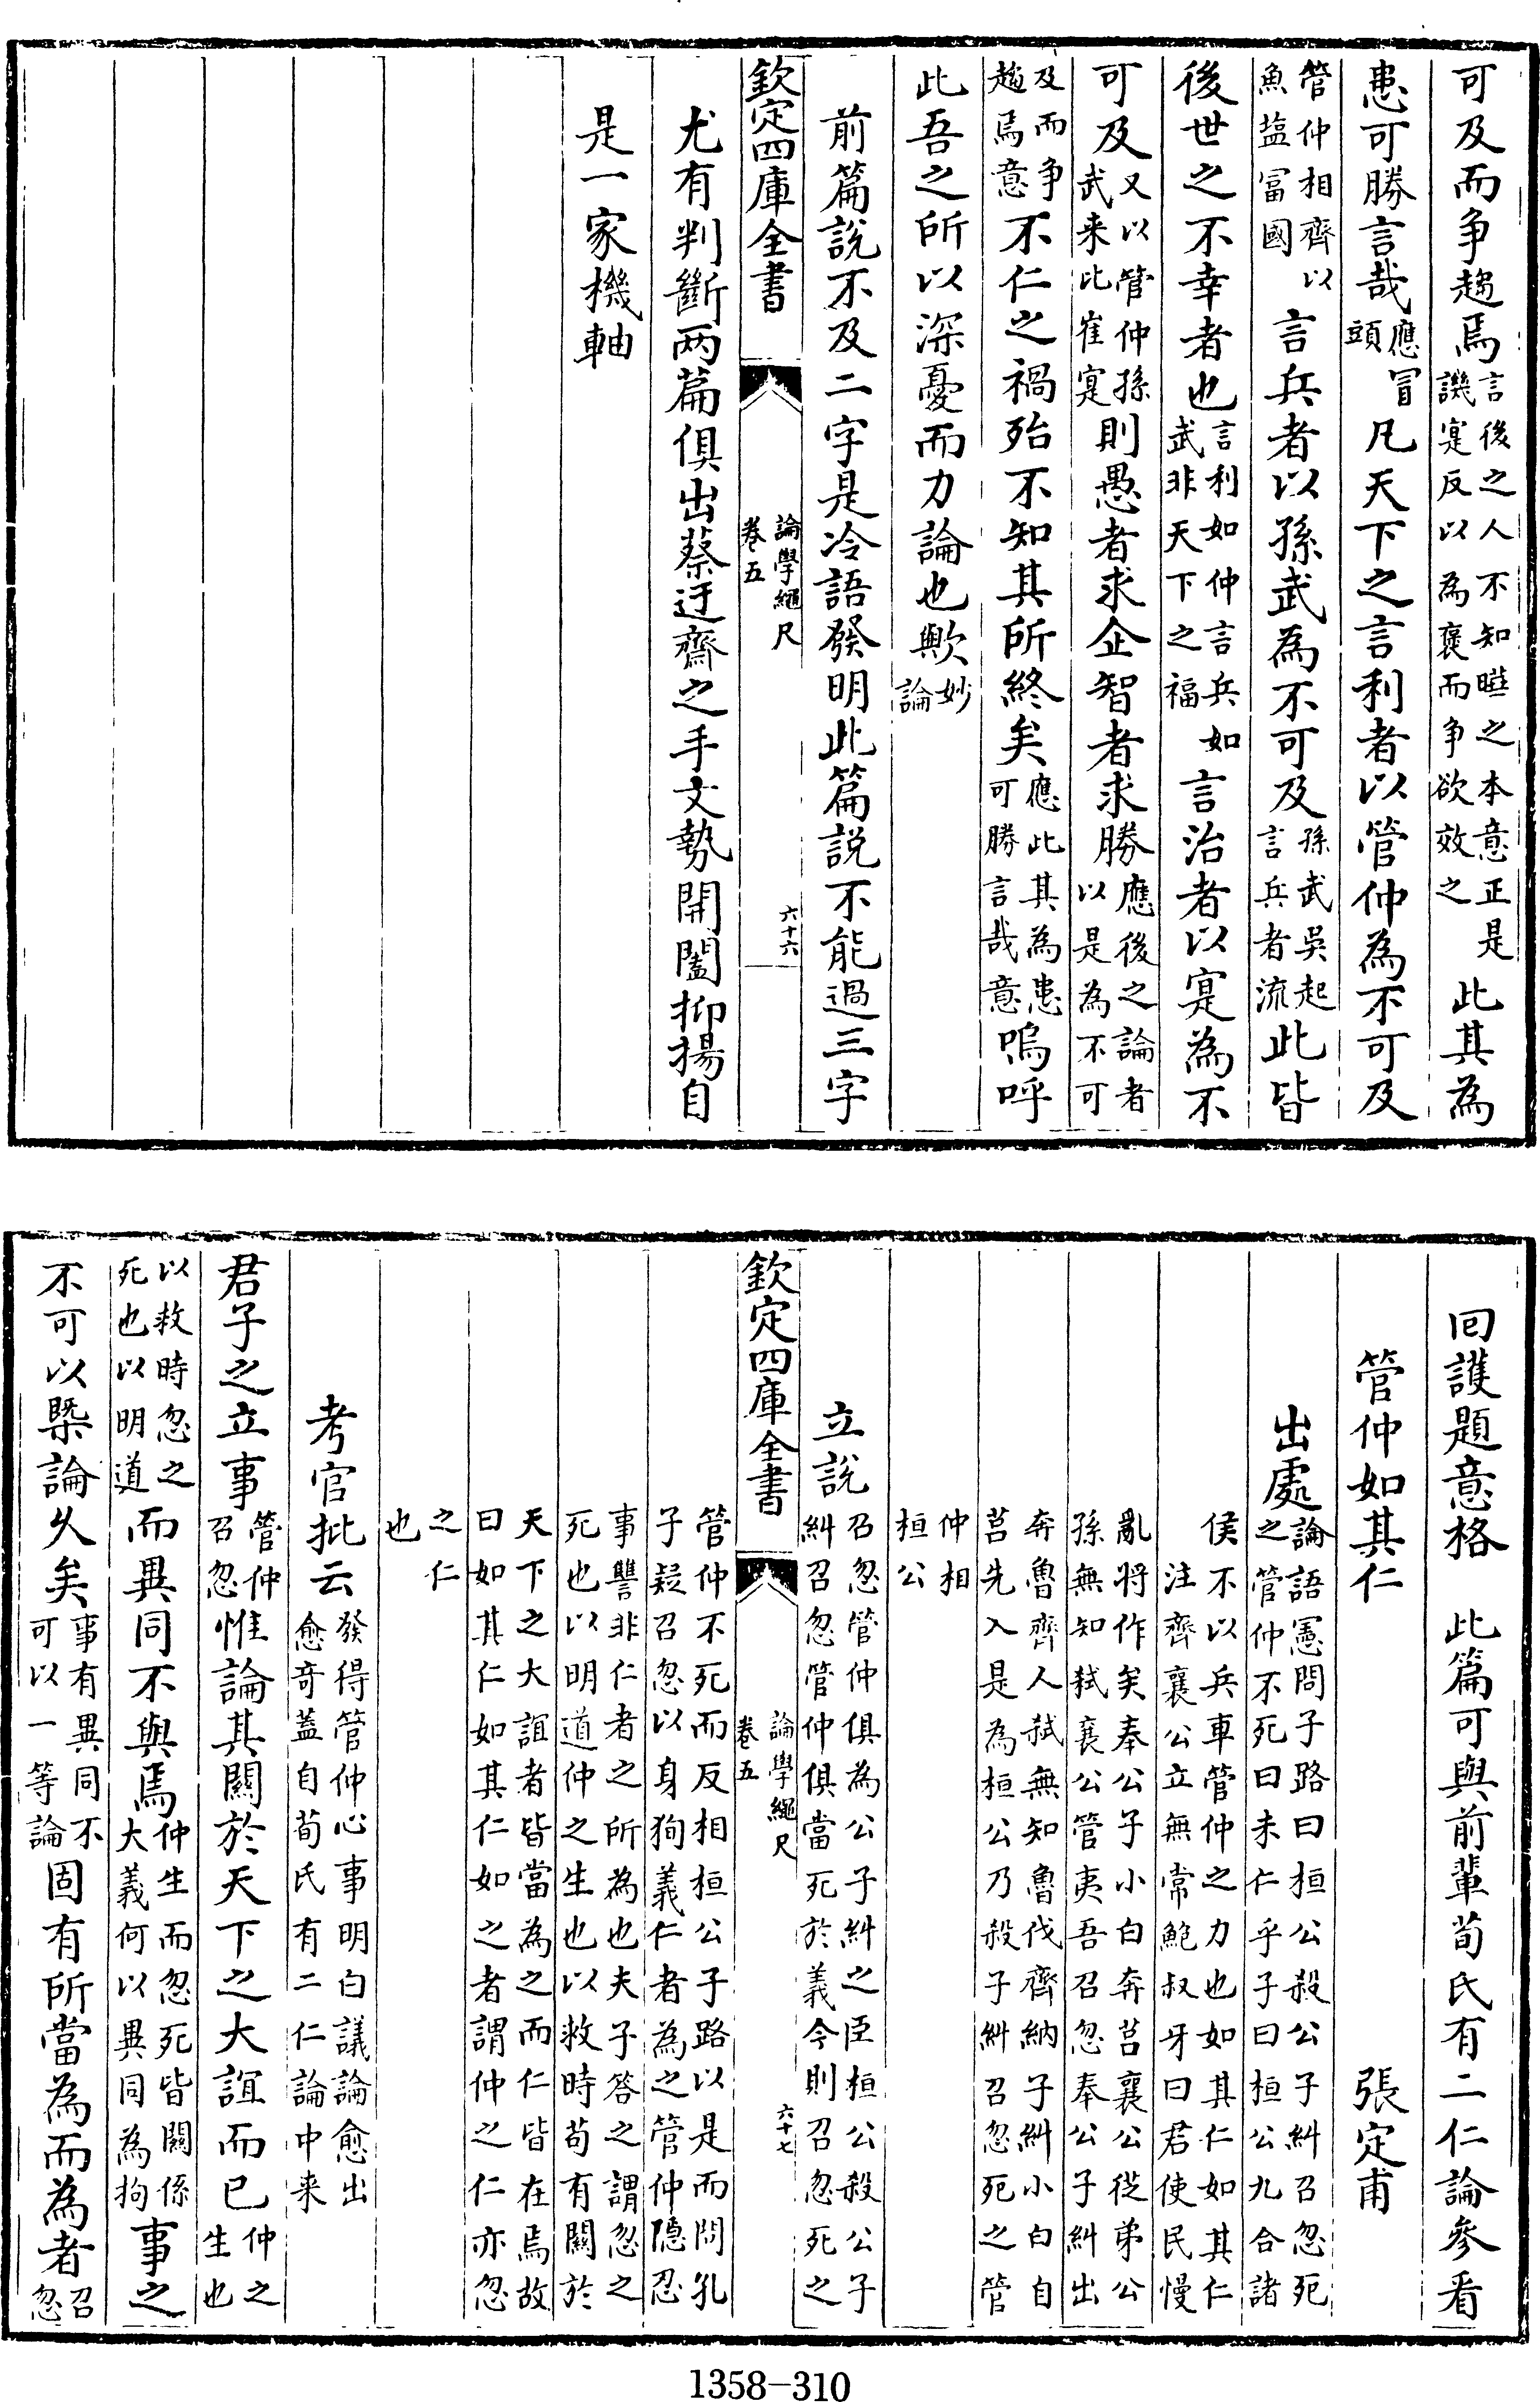 可及而争趨焉言後之人不知曄之本意正是譏寔反以為褒而争欲效之此其為
患可勝言哉應冒頭凡天下之言利者以管仲為不可及
管仲相齊以魚塩富國言兵者以孫武為不可及孫武吳起言兵者流此皆
後世之不幸者也言利如仲言兵如武非天下之福言治者以寔為不
可及又以管仲孫武来比崔寔則愚者求企智者求勝應後之論者以是為不可
及而争趨焉意不仁之禍殆不知其所終矣應此其為患可勝言哉意嗚呼
此吾之所以深憂而力論也歟妙論
前篇說不及二字是冷語發明此篇説不能過三字
欽定四庫全書 論學繩尺卷五 六十六
尤有判斷两篇俱出蔡迂齋之手文勢開闔抑揚自
是一家機軸
回護題意格 此篇可與前輩荀氏有二仁論參看
管仲如其仁 張定甫
出處論語憲問子路曰桓公殺公子糾召忽死之管仲不死曰未仁乎子曰桓公九合諸
侯不以兵車管仲之力也如其仁如其仁注齊襄公立無常鮑叔牙曰君使民慢
亂將作矣奉公子小白奔莒襄公從弟公孫無知弑襄公管夷吾召忽奉公子糾出
奔魯齊人弑無知魯伐齊納子糾小白自莒先入是為桓公乃殺子糾召忽死之管
仲相桓公
立說召忽管仲俱為公子糾之臣桓公殺公子糾召忽管仲俱當死於義今則召忽死之
欽定四庫全書 論學繩尺卷五 六十七
管仲不死而反相桓公子路以是而問孔子疑召忽以身狥義仁者為之管仲隱忍
事讐非仁者之所為也夫子答之謂忽之死也以明道仲之生也以救時苟有關於
天下之大誼者皆當為之而仁皆在焉故曰如其仁如其仁如之者謂仲之仁亦忽
之仁也
考官批云發得管仲心事明白議論愈出愈奇蓋自荀氏有二仁論中来
君子之立事管仲召忽惟論其關於天下之大誼而已仲之生也
以救時忽之死也以明道而異同不與焉仲生而忽死皆關係大義何以異同為拘事之
不可以槩論乆矣事有異同不可以一等論固有所當為而為者召忽
1358-310